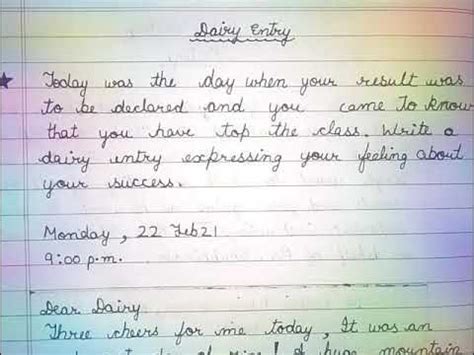 Dairy Entry
Today was the day when your result was
to be declared and you came to know
that you have top the class. Write a
dairy entry expressing your feeling about
your success.
Monday, 22 Feb21
9:00 p.m.
Dear Dairy,
Three cheers for me today, It was an
of mine! A huge mountain